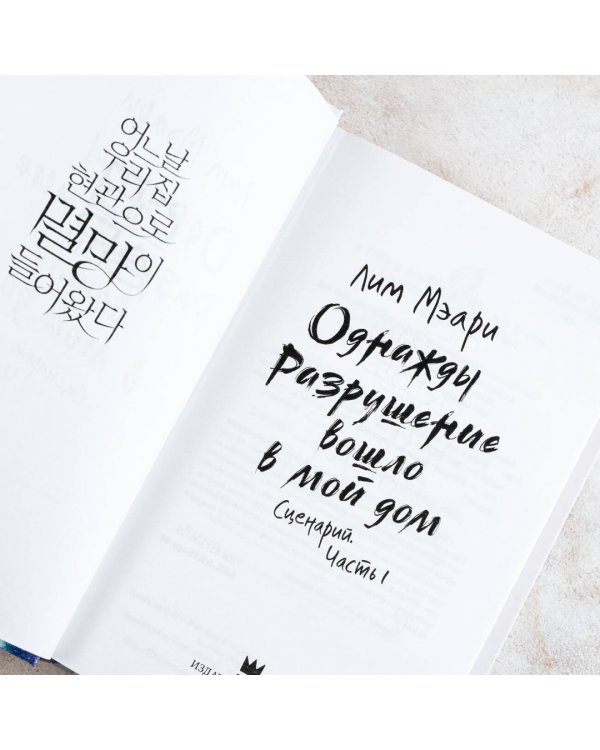 어느 날
우리 집
현관으로
멸망이
들어왔다
Лим Мэари
Однажды
Разрушение
вошло
в мой дом
Сценарий.
Часть 1